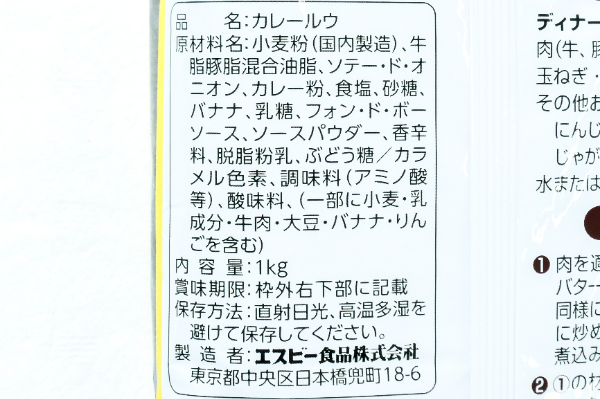 品 名:カレールウ
原材料名:小麦粉(国内製造)、牛
脂豚脂混合油脂、ソテー・ド・オ
ニオン、カレー粉、食塩、砂糖、
バナナ、乳糖、フォン・ド・ボー
ソース、ソースパウダー、香辛
料、脱脂粉乳、ぶどう糖/カラ
メル色素、調味料(アミノ酸
等)、酸味料、(一部に小麦・乳
成分・牛肉・大豆・バナナ・りん
ごを含む)
内 容 量:1kg
賞味期限:枠外右下部に記載
保存方法:直射日光、高温多湿を
避けて保存してください。
製 造 者:エスビー食品株式会社
東京都中央区日本橋兜町18-6
ディナー
肉(牛、豚
玉ねぎ・
その他お
にんじ
じゃが
水または
❶ 肉を適
バター
同様に
に炒め
煮込み
❷ ①の材